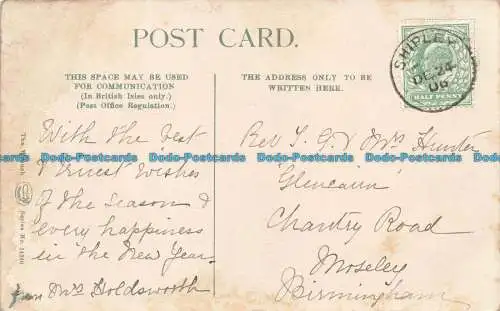 POST CARD.
THIS SPACE MAY BE USED
FOR COMMUNICATION
(In British Isles only.)
(Post Office Regulation.)
THE ADDRESS ONLY TO BE
WRITTEN HERE.
SHIPLEY
DE 24
06
HALF PENNY
With the best
& Ernest Wishes
of the Season &
every happiness
in the New Year
from Mrs Holdsworth
Rev T. G. & Mrs Hunter
Glencairn
Chantry Road
Moseley
Birmingham
The
Series No.
Dodo-Postcards Dodo-Postcards Dodo-Postcards Dodo-Postcards Dodo-Postcards